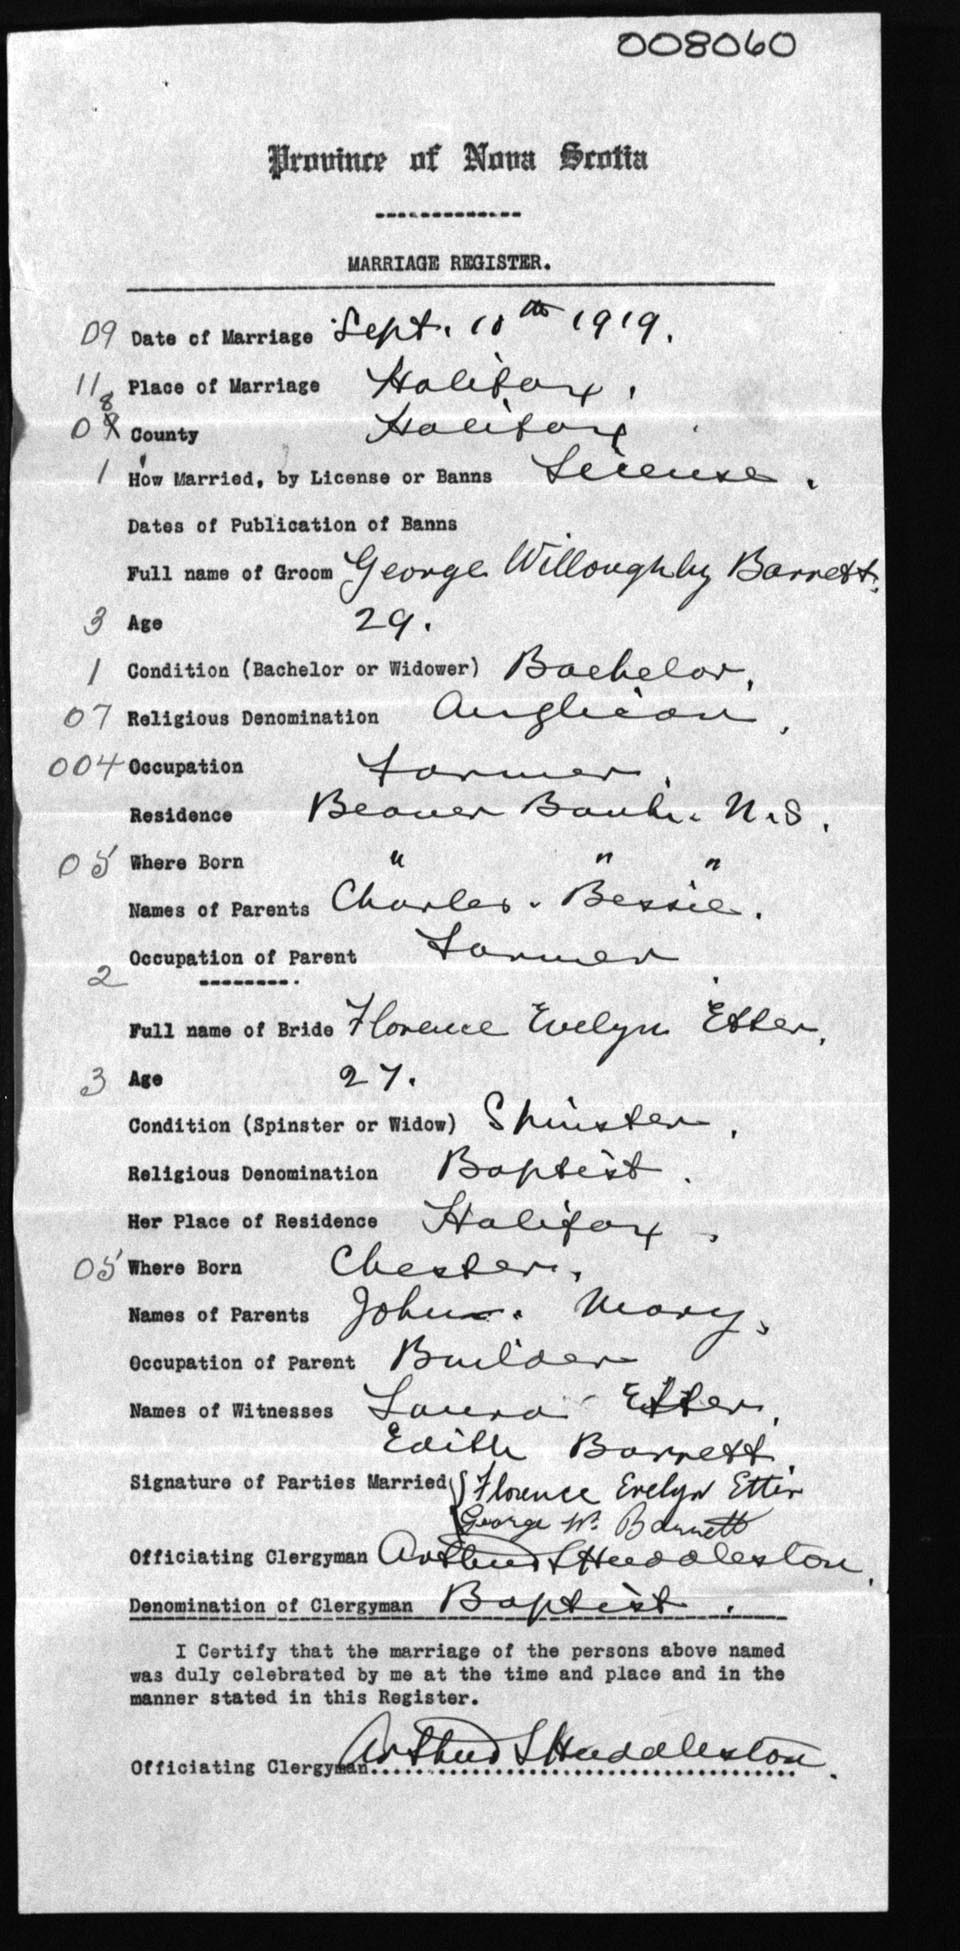 008060
Province of Nova Scotia
MARRIAGE REGISTER.
09 Date of Marriage Sept. 10th 1919.
11 Place of Marriage Halifax.
08 County Halifax
1 How Married, by License or Banns License.
Dates of Publication of Banns
Full name of Groom George Willoughby Barrett.
3 Age 29.
1 Condition (Bachelor or Widower) Bachelor.
07 Religious Denomination Anglican.
004 Occupation Farmer.
Residence Beaver Bank. N.S.
05 Where Born " " "
Names of Parents Charles. Bessie.
Occupation of Parent Farmer
2
Full name of Bride Florence Evelyn Etter.
3 Age 27.
Condition (Spinster or Widow) Spinster.
Religious Denomination Baptist.
Her Place of Residence Halifax.
05 Where Born Chester.
Names of Parents John. Mary.
Occupation of Parent Builder
Names of Witnesses Laura Etter.
Edith Barrett.
Signature of Parties Married { Florence Evelyn Etter
George W. Barrett
Officiating Clergyman Arthur S Huddleston.
Denomination of Clergyman Baptist.
I Certify that the marriage of the persons above named
was duly celebrated by me at the time and place and in the
manner stated in this Register.
Officiating Clergyman Arthur S Huddleston.